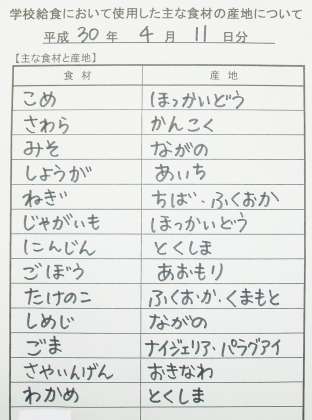 学校給食において使用した主な食材の産地について
平成 30 年 4 月 11 日分
【主な食材と産地】
食材 産地
こめ ほっかいどう
さわら かんこく
みそ ながの
しょうが あいち
ねぎ ちば・ふくおか
じゃがいも ほっかいどう
にんじん とくしま
ごぼう あおもり
たけのこ ふくおか・くまもと
しめじ ながの
ごま ナイジェリア・パラグアイ
さやいんげん おきなわ
わかめ とくしま